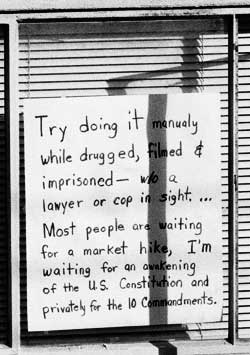 Try doing it manualy
while drugged, filmed &
imprisoned— w/o a
lawyer or cop in sight. ...
Most people are waiting
for a market hike, I'm
waiting for an awakening
of the U.S. Constitution and
privately for the 10 Commandments.